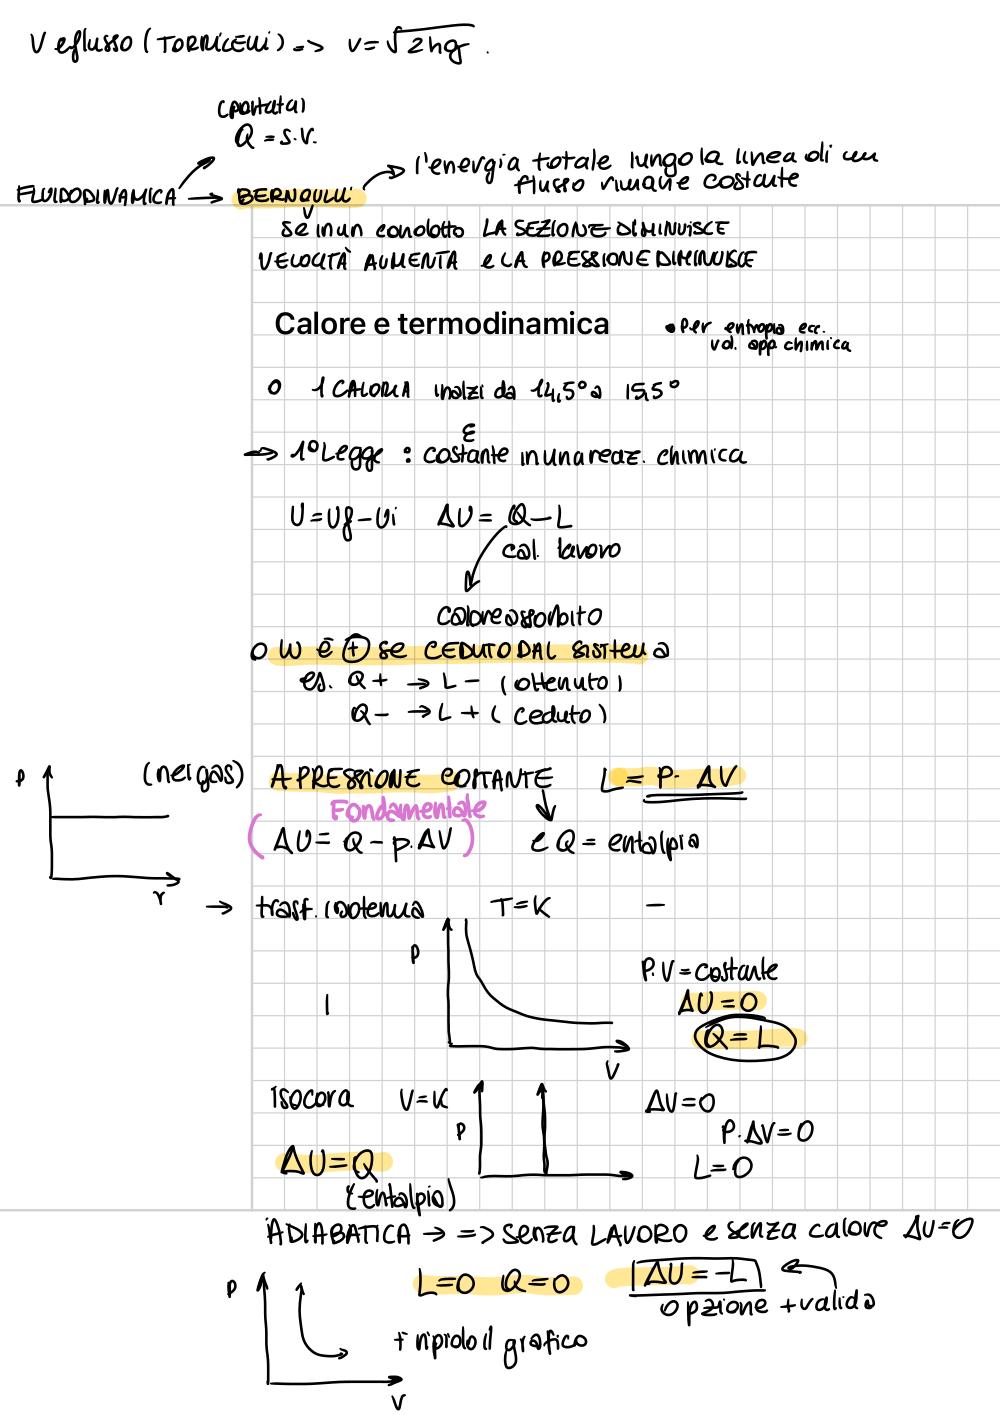 V eflusso (TORRICELLI) => v = √2hg .
(portata)
Q = S.V.
FLUIDODINAMICA → BERNOULLI → l'energia totale lungo la linea di un
flusso rimane costante
se in un condotto LA SEZIONE DIMINUISCE
VELOCITÀ AUMENTA e LA PRESSIONE DIMINUISCE
Calore e termodinamica
• Per entropia ecc.
vd. app chimica
o 1 CALORIA inalzi da 14,5° a 15,5°
E
→ 1° Legge : costante in una reaz. chimica
U = Uf - Ui ΔU = Q - L
cal. lavoro
calore assorbito
o W è (+) se CEDUTO DAL SISTEMA
es. Q + → L - (ottenuto)
Q - → L + (ceduto)
P
(nei gas) A PRESSIONE COSTANTE L = P · ΔV
Fondamentale
(ΔU = Q - p. ΔV) e Q = entalpia
V
→ trasf. isotermica T = K -
P
P.V = costante
ΔU = 0
Q = L
V
Isocora V = K
P
ΔV = 0
P. ΔV = 0
L = 0
ΔU = Q
(entalpia)
ADIABATICA → => senza LAVORO e senza calore ΔU = 0
P
L = 0 Q = 0 ΔU = -L
opzione + valida
+ ripido il grafico
V